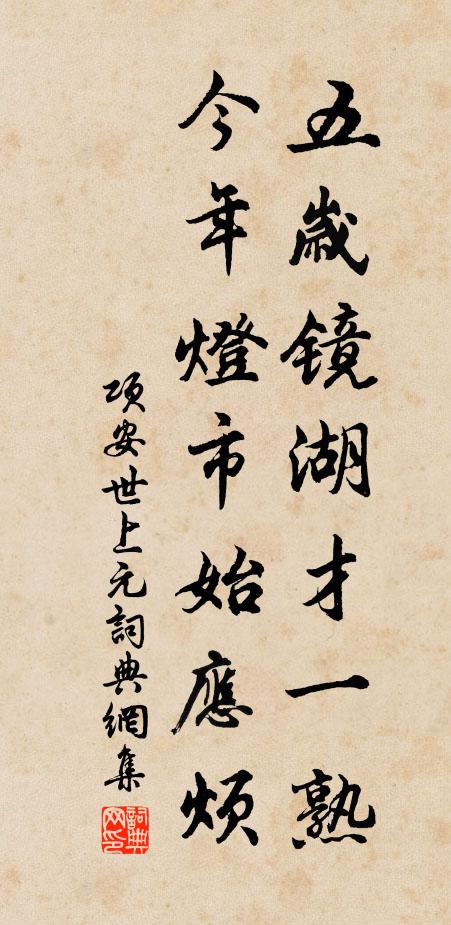 五歲鏡湖才一熟
今年燈市始應煩
項安世上元詞典網集
詞典网印